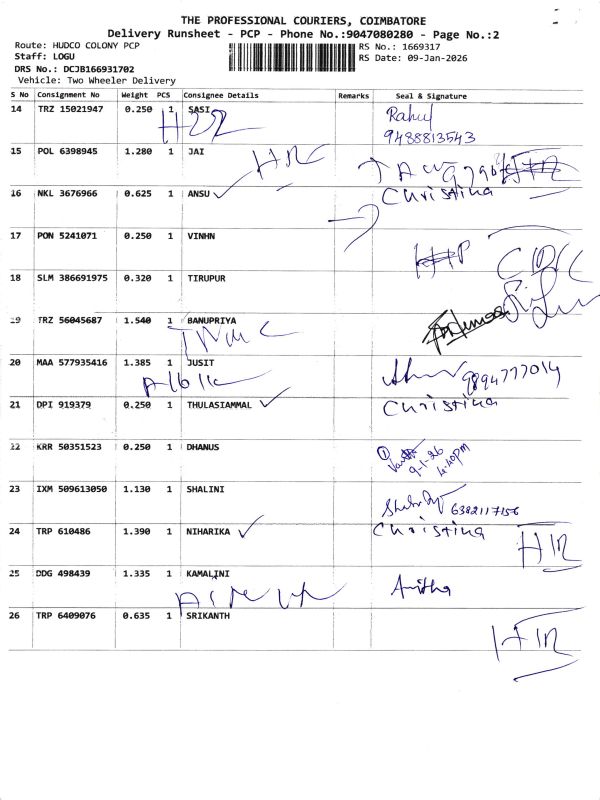 THE PROFESSIONAL COURIERS, COIMBATORE
Delivery Runsheet - PCP - Phone No.:9047080280 - Page No.:2
Route: HUDCO COLONY PCP
RS No.: 1669317
Staff: LOGU
RS Date: 09-Jan-2026
DRS No.: DCJB166931702
Vehicle: Two Wheeler Delivery
S No Consignment No Weight PCS Consignee Details Remarks Seal & Signature
14 TRZ 15021947 0.250 1 SASI Rahul
9488813543
15 POL 6398945 1.280 1 JAI
16 NKL 3676966 0.625 1 ANSU ✓ Christina
17 PON 5241071 0.250 1 VINHN
18 SLM 386691975 0.320 1 TIRUPUR
19 TRZ 56045687 1.540 1 BANUPRIYA
20 MAA 577935416 1.385 1 JUSIT 9894777014
21 DPI 919379 0.250 1 THULASIAMMAL ✓ Christina
22 KRR 50351523 0.250 1 DHANUS
9-1-26
4:40PM
23 IXM 509613050 1.130 1 SHALINI
6382117156
24 TRP 610486 1.390 1 NIHARIKA ✓ Christina
25 DDG 498439 1.335 1 KAMALINI Anitha
26 TRP 6409076 0.635 1 SRIKANTH